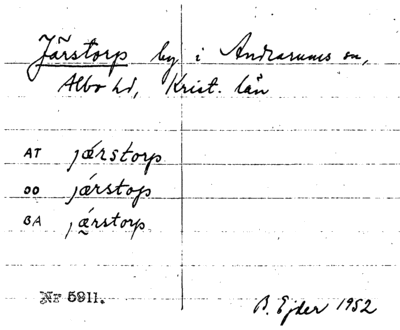 Järstorp by i Andrarums sn,
Albo hd, Krist. län
AT járstorp
OO járstop
BA jä́rstorp
Nr 5911.
B. Ejder 1952